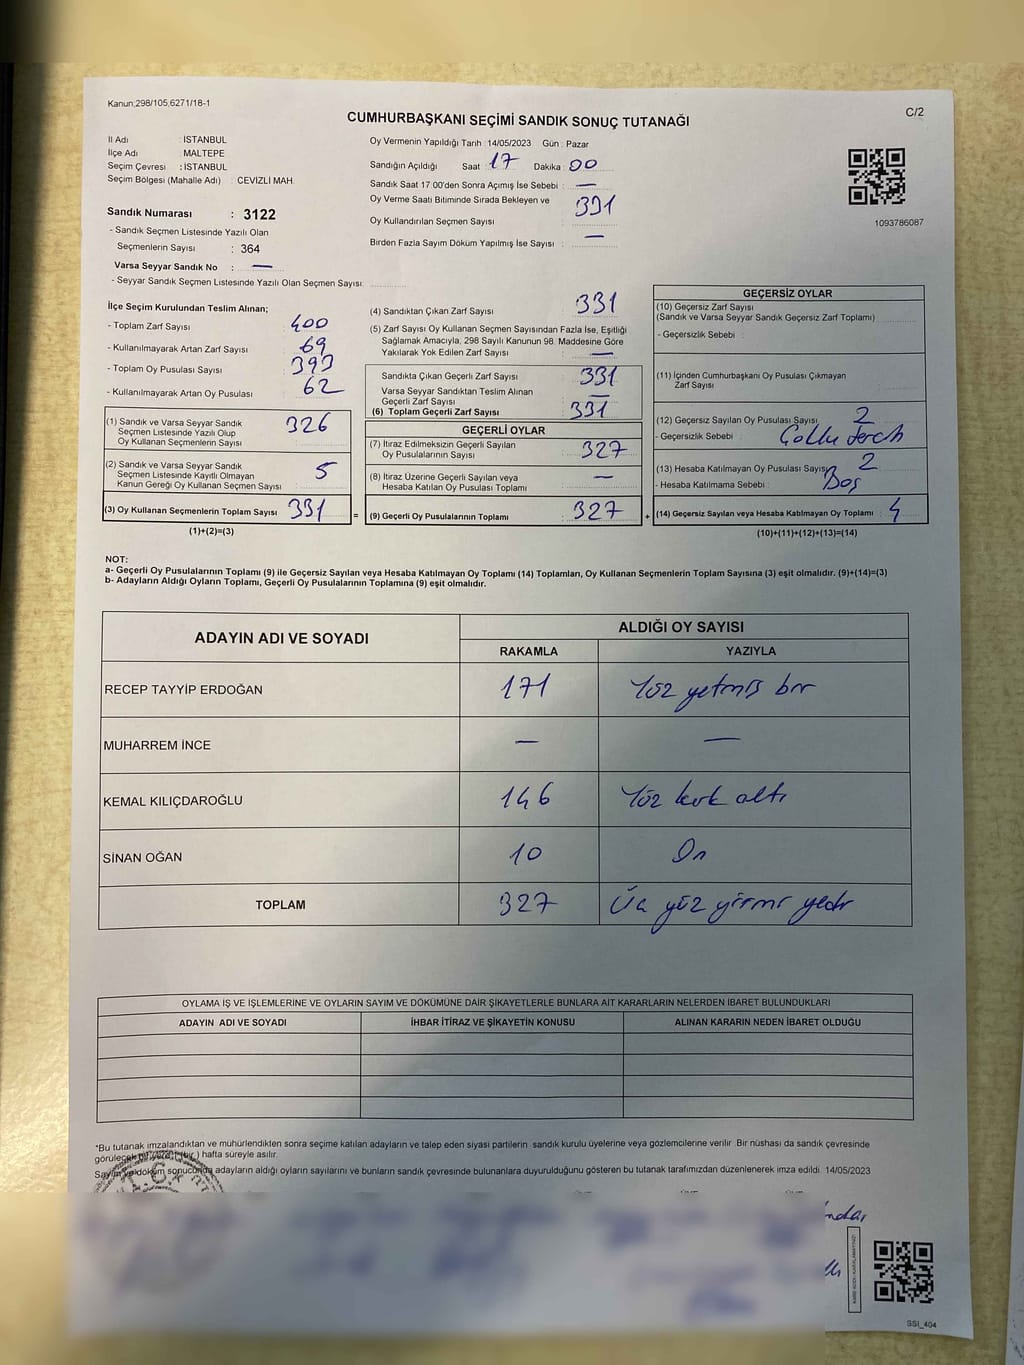 Kanun;298/105,6271/18-1
C/2
CUMHURBAŞKANI SEÇİMİ SANDIK SONUÇ TUTANAĞI
İl Adı : İSTANBUL
İlçe Adı : MALTEPE
Seçim Çevresi : İSTANBUL
Seçim Bölgesi (Mahalle Adı) : CEVİZLİ MAH.
Sandık Numarası : 3122
- Sandık Seçmen Listesinde Yazılı Olan
Seçmenlerin Sayısı : 364
Varsa Seyyar Sandık No : —
- Seyyar Sandık Seçmen Listesinde Yazılı Olan Seçmen Sayısı:
Oy Vermenin Yapıldığı Tarih :14/05/2023 Gün : Pazar
Sandığın Açıldığı Saat : 17 Dakika : 00
Sandık Saat 17:00'den Sonra Açılmış İse Sebebi : —
Oy Verme Saati Bitiminde Sırada Bekleyen ve
Oy Kullandırılan Seçmen Sayısı : 331
Birden Fazla Sayım Döküm Yapılmış İse Sayısı : —
1093786087
İlçe Seçim Kurulundan Teslim Alınan;
- Toplam Zarf Sayısı : 400
- Kullanılmayarak Artan Zarf Sayısı : 69
- Toplam Oy Pusulası Sayısı : 393
- Kullanılmayarak Artan Oy Pusulası : 62
(1) Sandık ve Varsa Seyyar Sandık
Seçmen Listesinde Yazılı Olup
Oy Kullanan Seçmenlerin Sayısı : 326
(2) Sandık ve Varsa Seyyar Sandık
Seçmen Listesinde Kayıtlı Olmayan
Kanun Gereği Oy Kullanan Seçmen Sayısı : 5
(3) Oy Kullanan Seçmenlerin Toplam Sayısı : 331
(1)+(2)=(3)
(4) Sandıktan Çıkan Zarf Sayısı : 331
(5) Zarf Sayısı Oy Kullanan Seçmen Sayısından Fazla İse, Eşitliği
Sağlamak Amacıyla, 298 Sayılı Kanunun 98. Maddesine Göre
Yakılarak Yok Edilen Zarf Sayısı : —
Sandıkta Çıkan Geçerli Zarf Sayısı : 331
Varsa Seyyar Sandıktan Teslim Alınan
Geçerli Zarf Sayısı : —
(6) Toplam Geçerli Zarf Sayısı : 331
GEÇERLİ OYLAR
(7) İtiraz Edilmeksizin Geçerli Sayılan
Oy Pusulalarının Sayısı : 327
(8) İtiraz Üzerine Geçerli Sayılan veya
Hesaba Katılan Oy Pusulası Toplamı : —
= (9) Geçerli Oy Pusulalarının Toplamı : 327 +
GEÇERSİZ OYLAR
(10) Geçersiz Zarf Sayısı
(Sandık ve Varsa Seyyar Sandık Geçersiz Zarf Toplamı) :
- Geçersizlik Sebebi :
(11) İçinden Cumhurbaşkanı Oy Pusulası Çıkmayan
Zarf Sayısı :
(12) Geçersiz Sayılan Oy Pusulası Sayısı : 2
- Geçersizlik Sebebi : Çoklu tercih
(13) Hesaba Katılmayan Oy Pusulası Sayısı : 2
- Hesaba Katılmama Sebebi : Boş
(14) Geçersiz Sayılan veya Hesaba Katılmayan Oy Toplamı : 4
(10)+(11)+(12)+(13)=(14)
NOT:
a- Geçerli Oy Pusulalarının Toplamı (9) ile Geçersiz Sayılan veya Hesaba Katılmayan Oy Toplamı (14) Toplamları, Oy Kullanan Seçmenlerin Toplam Sayısına (3) eşit olmalıdır. (9)+(14)=(3)
b- Adayların Aldığı Oyların Toplamı, Geçerli Oy Pusulalarının Toplamına (9) eşit olmalıdır.
ADAYIN ADI VE SOYADI ALDIĞI OY SAYISI
RAKAMLA YAZIYLA
RECEP TAYYİP ERDOĞAN 171 Yüz yetmiş bir
MUHARREM İNCE — —
KEMAL KILIÇDAROĞLU 146 Yüz kırk altı
SİNAN OĞAN 10 On
TOPLAM 327 Üç yüz yirmi yedi
OYLAMA İŞ VE İŞLEMLERİNE VE OYLARIN SAYIM VE DÖKÜMÜNE DAİR ŞİKAYETLERLE BUNLARA AİT KARARLARIN NELERDEN İBARET BULUNDUKLARI
ADAYIN ADI VE SOYADI İHBAR İTİRAZ VE ŞİKAYETİN KONUSU ALINAN KARARIN NEDEN İBARET OLDUĞU
*Bu tutanak imzalandıktan ve mühürlendikten sonra seçime katılan adayların ve talep eden siyasi partilerin sandık kurulu üyelerine veya gözlemcilerine verilir. Bir nüshası da sandık çevresinde
görülecek bir yere 1 (bir) hafta süreyle asılır.
Sayım ve döküm sonucunda adayların aldığı oyların sayılarını ve bunların sandık çevresinde bulunanlara duyurulduğunu gösteren bu tutanak tarafımızdan düzenlenerek imza edildi. 14/05/2023
T.C.
SSI_404